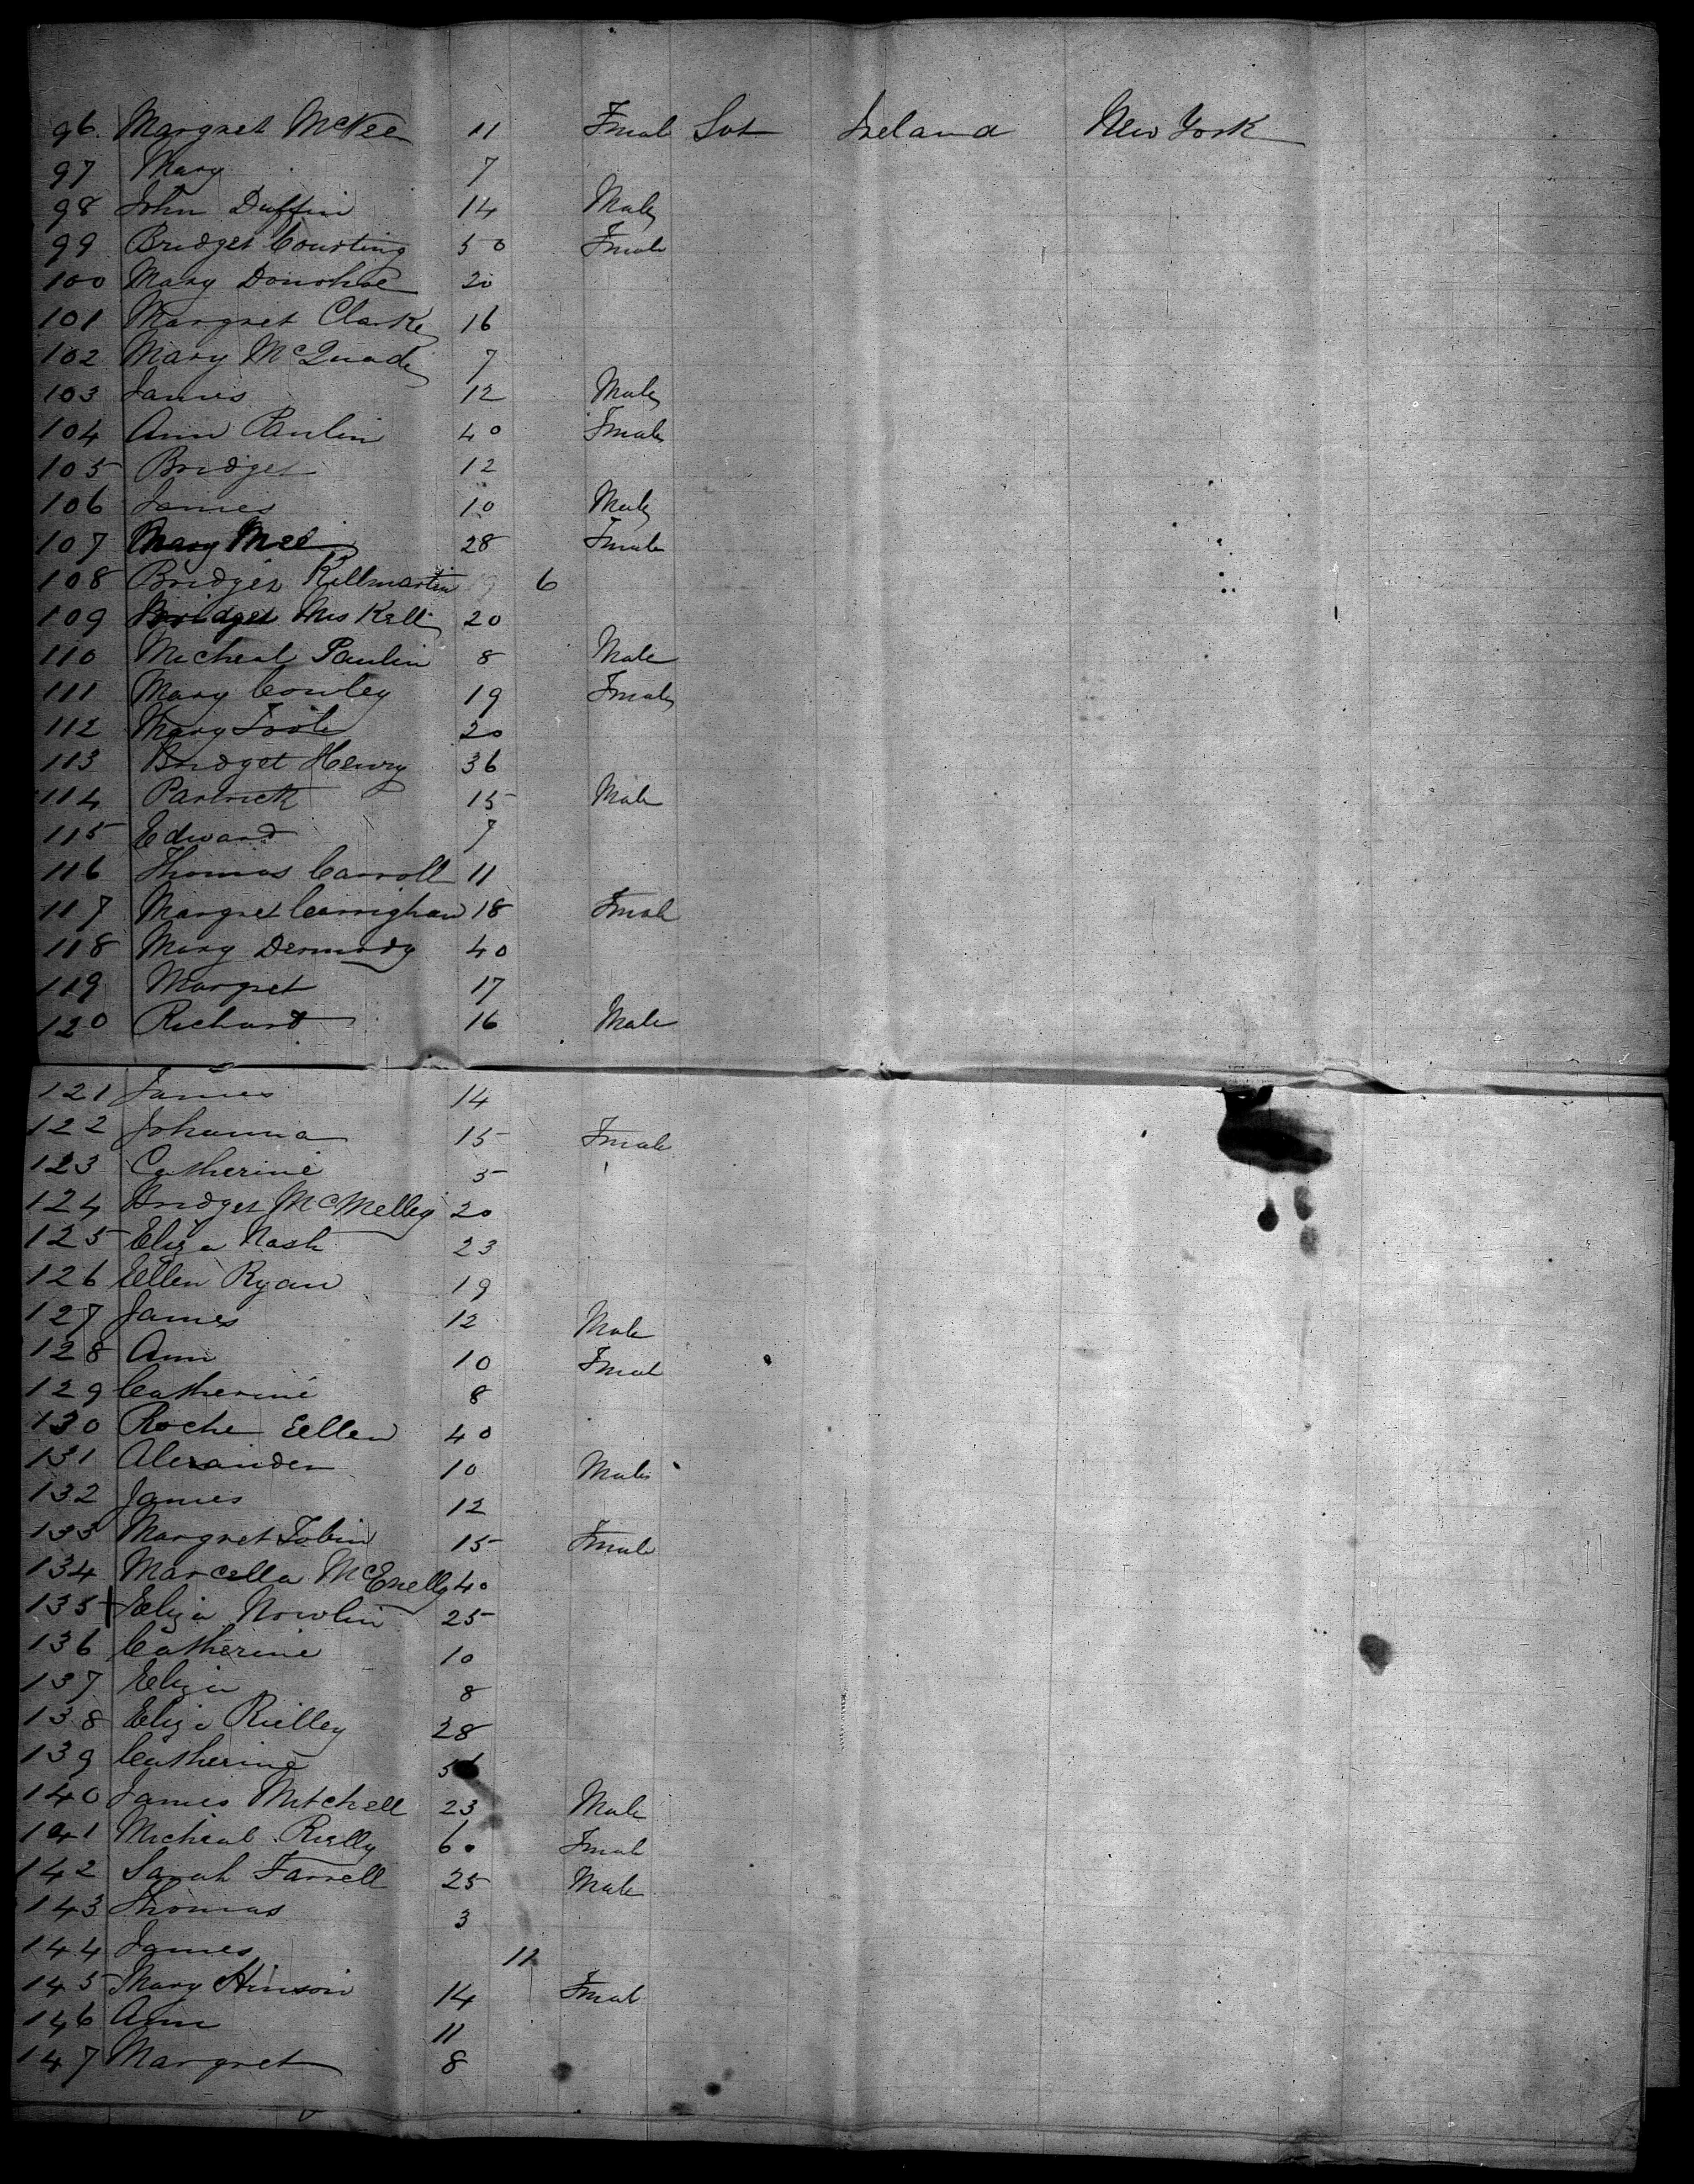 96. Margret McKee 11 Fmal Sot Ireland New York
97 Mary 7
98 John Duffin 14 Male
99 Bridget Courting 50 Fmale
100 Mary Donohoe 20
101 Margret Clarke 16
102 Mary McQuade 7
103 James 12 Male
104 Ann Paulin 40 Fmale
105 Bridget 12
106 James 10 Male
107 Mary Mee 28 Fmale
108 Bridget Killmartin 6
109 Bridget Kelli 20
110 Micheal Paulin 8 Male
111 Mary Conley 19 Fmale
112 Mary Toole 20
113 Bridget Henry 36
114 Partrick 15 Male
115 Edward 7
116 Thomas Carroll 11
117 Margret Carrighan 18 Fmale
118 Mary Dermody 40
119 Margret 17
120 Richard 16 Male
121 James 14
122 Johanna 15 Fmale
123 Catherine 5
124 Bridget McMelley 20
125 Eliza Nash 23
126 Ellen Ryan 19
127 James 12 Male
128 Ann 10 Fmal
129 Catherine 8
130 Roche Ellen 40
131 Alexander 10 Male
132 James 12
133 Margret Tobin 15 Fmale
134 Marcella McEnelly 40
135 Eliza Nowlin 25
136 Catherine 10
137 Eliza 8
138 Eliza Rielley 28
139 Catherine 5
140 James Mitchell 23 Male
141 Micheal Rielly 60 Fmal
142 Sarah Farrell 25 Male
143 Thomas 3
144 James 11
145 Mary Hinson 14 Fmal
146 Ann 11
147 Margret 8